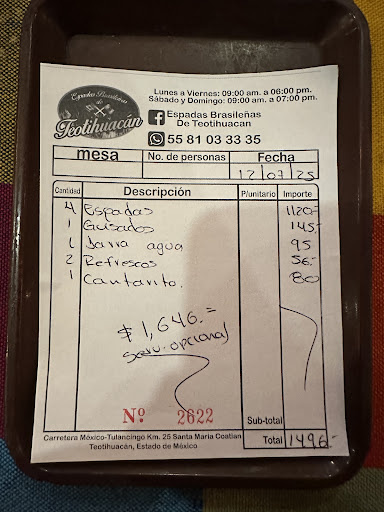 Espadas Brasileñas
de
Teotihuacán
Lunes a Viernes: 09:00 am. a 06:00 pm.
Sábado y Domingo: 09:00 am. a 07:00 pm.
Espadas Brasileñas
De Teotihuacan
55 81 03 33 35
mesa No. de personas Fecha
12/07/25
Cantidad Descripción P/unitario Importe
4 Espadas 1120.-
1 Guisados 145.-
1 Jarra agua 95
2 Refrescos 56.-
1 Cantarito. 80
$1,646.=
serv. opcional
Nº 2622
Sub-total
Carretera México-Tulancingo Km. 25 Santa María Coatlan
Teotihuacán, Estado de México
Total 1496.-